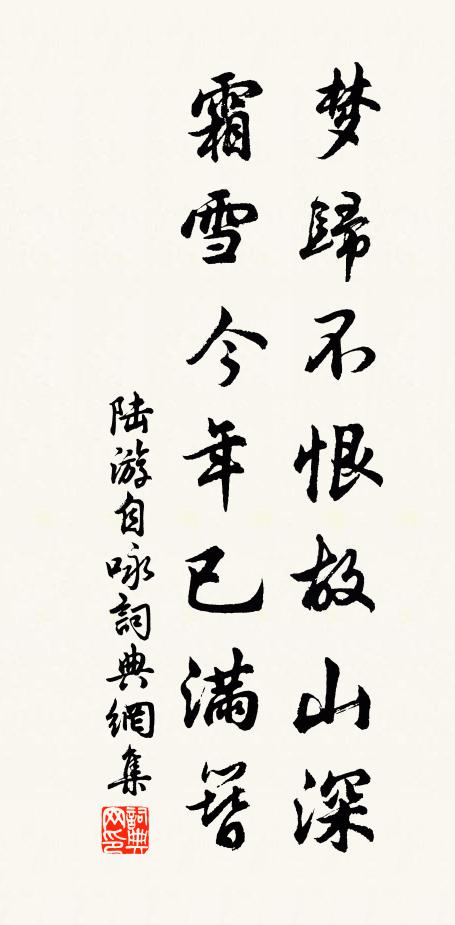 梦歸不恨故山深
霜雪今年已满簪
陆游自咏詞典網集
詞典
网印